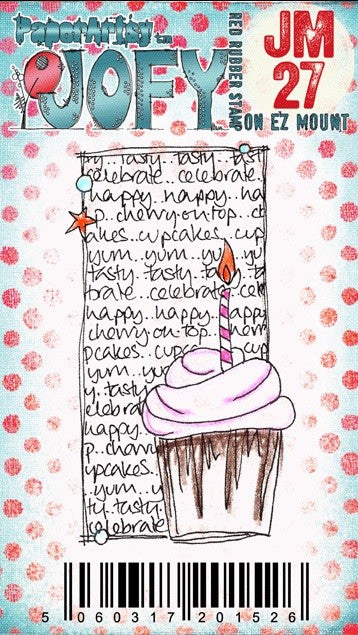 PaperArtsy
JOFY
RED RUBBER STAMP
JM
27
ON EZ MOUNT
ry.. tasty.. tasty.. tast
celebrate.. celebrate..
happy.. happy.. hap
p.. cherry·on·top.. c
akes.. cupcakes.. cu
yum.. yum.. yum.. yu
tasty.. tasty.. tasty.. ta
brate.. celebrate.. celeb
happy.. happy.. happy
cherry·on·top.. cherr
pcakes.. cupc
yum.. y
y.. tasty
elebra
happy.
p.. cherr
upcakes..
..yum.. yu
ty.. tasty
celebrate
5 060317 201526